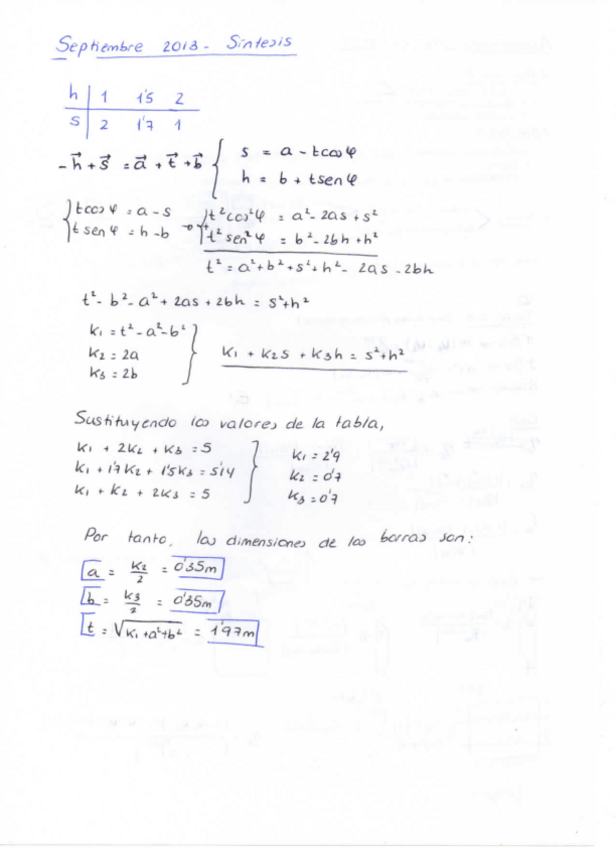 Septiembre 2013 - Síntesis
h | 1 1'5 2
s | 2 1'7 1
-h⃗ + s⃗ = a⃗ + t⃗ + b⃗ { s = a - tcosφ
h = b + tsenφ
{ tcosφ = a - s
t senφ = h - b
t²cos²φ = a² - 2as + s²
t² sen²φ = b² - 2bh + h²
t² = a² + b² + s² + h² - 2as - 2bh
t² - b² - a² + 2as + 2bh = s² + h²
K₁ = t² - a² - b²
K₂ = 2a
K₃ = 2b
K₁ + K₂s + K₃h = s² + h²
Sustituyendo los valores de la tabla,
K₁ + 2K₂ + K₃ = 5
K₁ + 1'7K₂ + 1'5K₃ = 5'14
K₁ + K₂ + 2K₃ = 5
K₁ = 2'9
K₂ = 0'7
K₃ = 0'7
Por tanto, las dimensiones de las barras son:
a = K₂/2 = 0'35m
b = K₃/2 = 0'35m
t = √K₁ + a² + b² = 1'97m